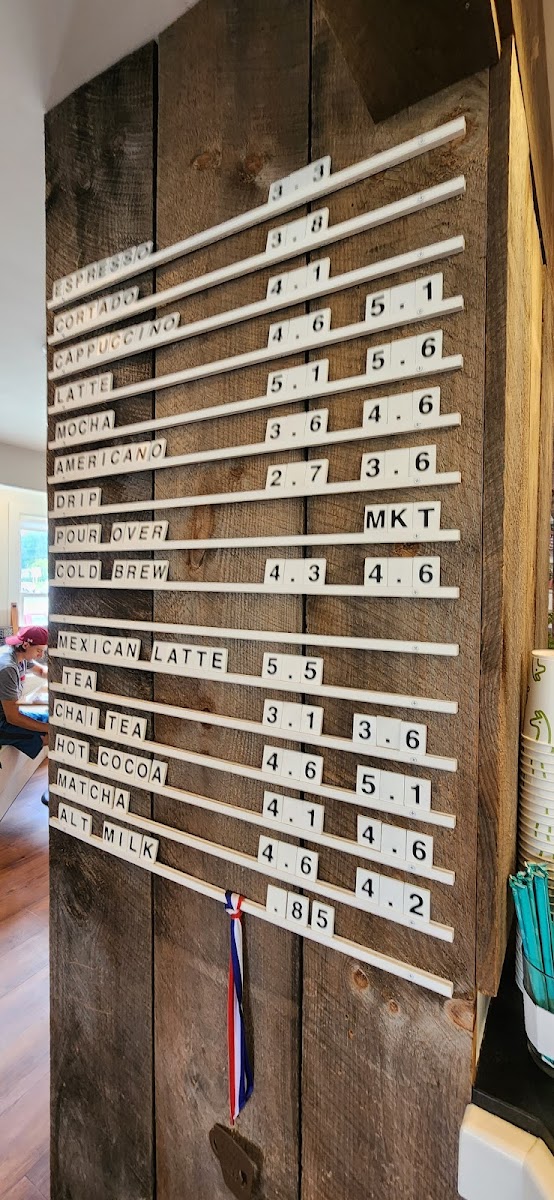 ESPRESSO 3.3
CORTADO 3.8
CAPPUCCINO 4.1
LATTE 4.6 5.1
MOCHA 5.1 5.6
AMERICANO 3.6 4.6
DRIP 2.7 3.6
POUR OVER MKT
COLD BREW 4.3 4.6
MEXICAN LATTE 5.5
TEA 3.1 3.6
CHAI TEA 4.6 5.1
HOT COCOA 4.1 4.6
MATCHA 4.6 4.2
ALT MILK .85